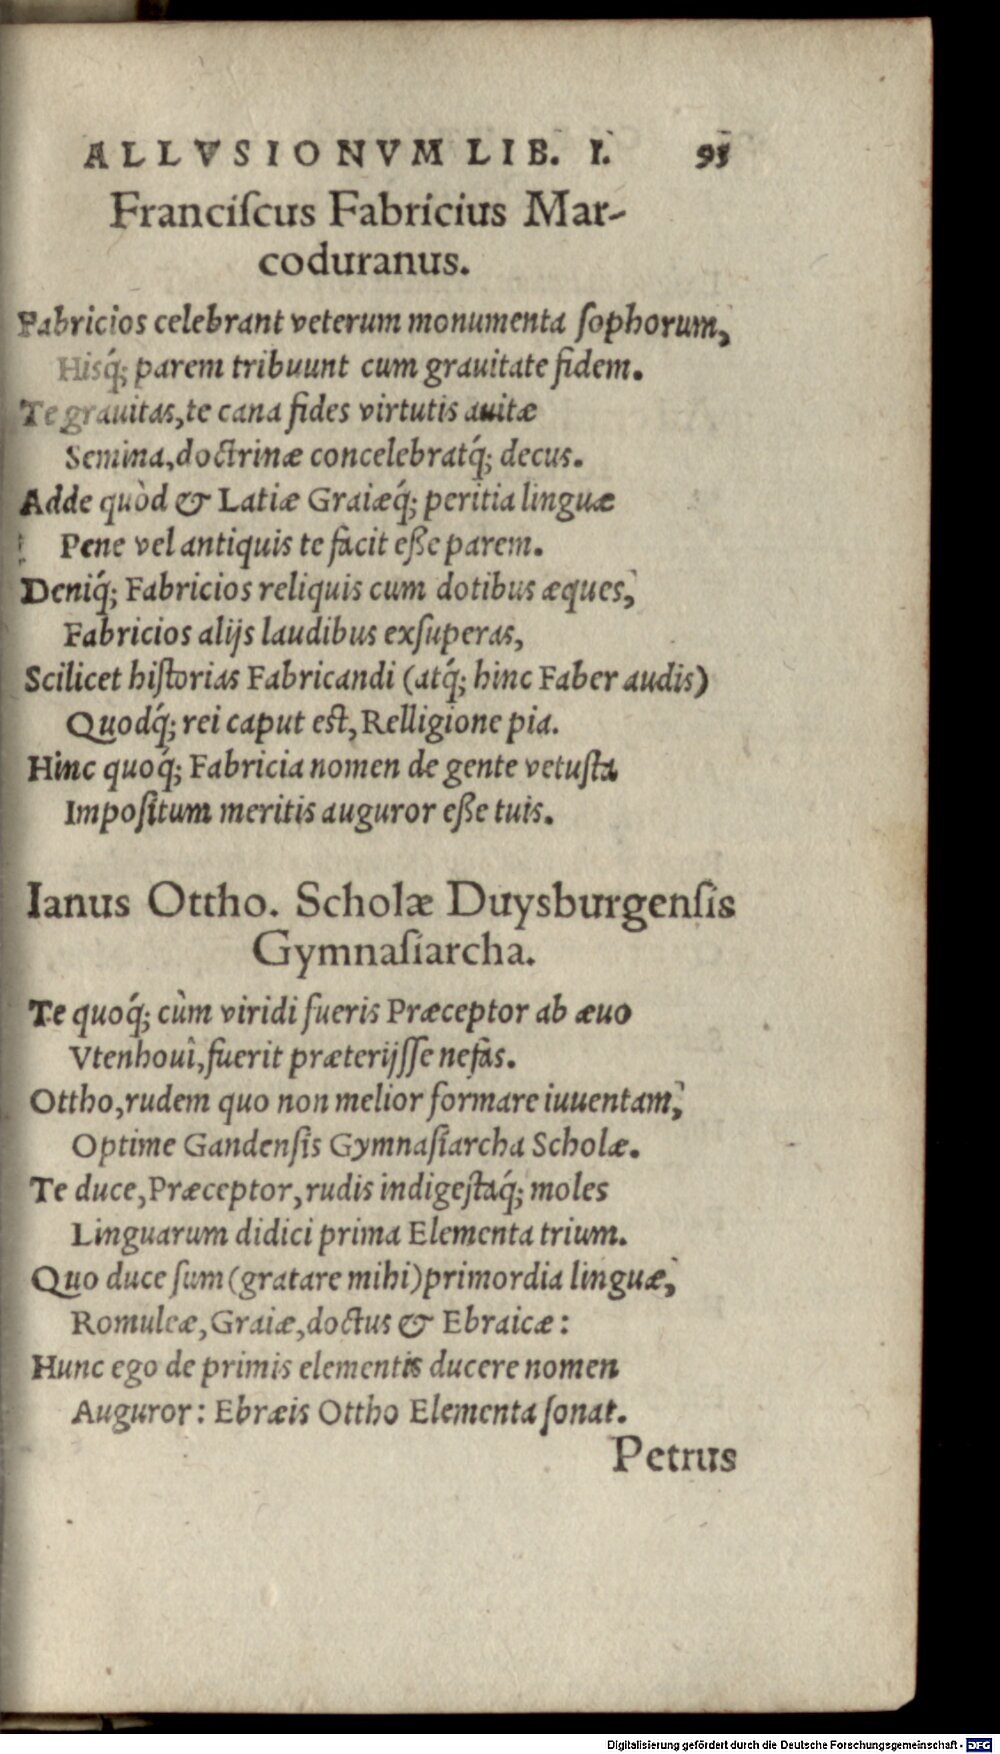 ALLVSIONVM LIB. I. 95
Franciſcus Fabricius Mar-
coduranus.
Fabricios celebrant veterum monumenta ſophorum,
Hisq́; parem tribuunt cum grauitate fidem.
Te grauitas, te cana fides virtutis auitæ
Semina, doctrinæ concelebratq́; decus.
Adde quòd & Latiæ Graiæq́; peritia linguæ
Pene vel antiquis te facit eße parem.
Deniq́; Fabricios reliquis cum dotibus æques,
Fabricios alijs laudibus exſuperas,
Scilicet hiſtorias Fabricandi (atq́; hinc Faber audis)
Quodq́; rei caput est, Relligione pia.
Hinc quoq́; Fabricia nomen de gente vetuſta
Impoſitum meritis auguror eße tuis.
Ianus Ottho. Scholæ Duysburgenſis
Gymnaſiarcha.
Te quoq́; cùm viridi fueris Præceptor ab æuo
Vtenhouî, fuerit præterijſſe nefas.
Ottho, rudem quo non melior formare iuuentam,
Optime Gandenſis Gymnaſiarcha Scholæ.
Te duce, Præceptor, rudis indigeſtaq́; moles
Linguarum didici prima Elementa trium.
Quo duce ſum (gratare mihi) primordia linguæ,
Romuleæ, Graiæ, doctus & Ebraicæ:
Hunc ego de primis elementis ducere nomen
Auguror: Ebræis Ottho Elementa ſonat.
Petrus
Digitalisierung gefördert durch die Deutsche Forschungsgemeinschaft - DFG